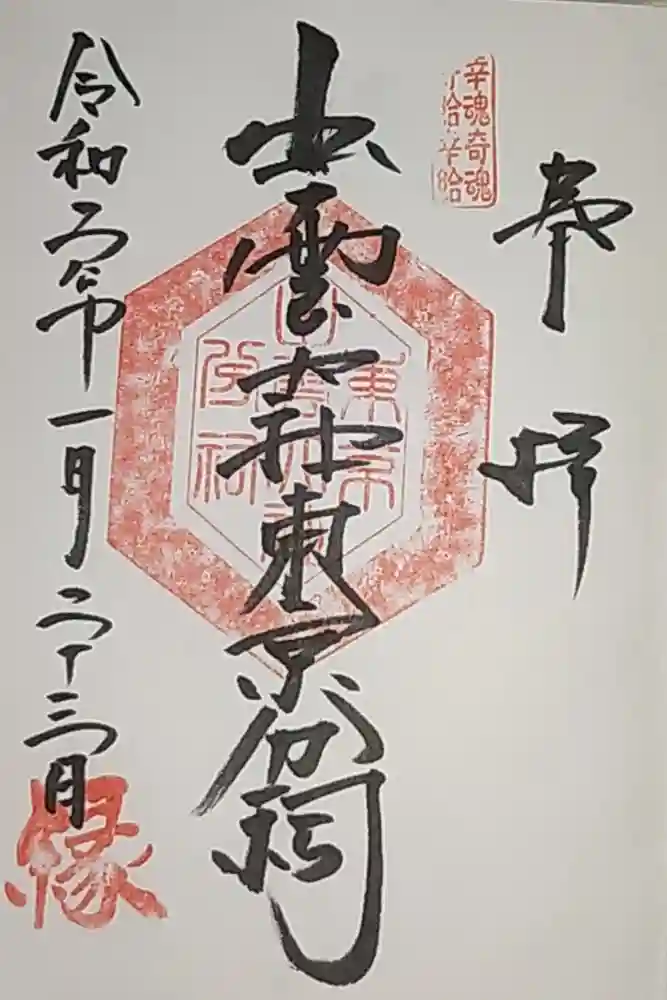 奉拝
幸魂奇魂
出雲大社東京分祠
東京
出雲大社
分祠
令和二年一月二十三日
縁